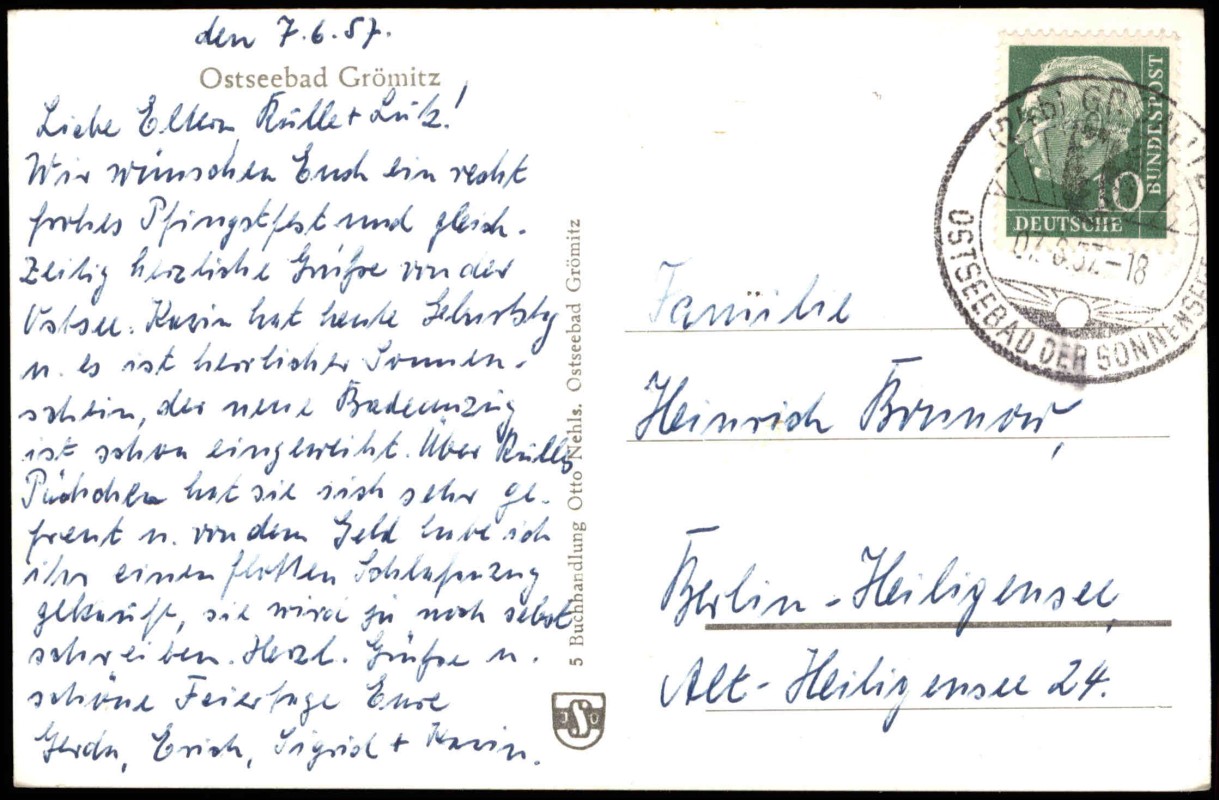 den 7.6.57.
Ostseebad Grömitz
Liebe Eltern, Rulle + Lutz!
Wir wünschen Euch ein recht
frohes Pfingstfest und gleich-
zeitig herzliche Grüße von der
Ostsee. Karin hat heute Geburtstg
u. es ist herrlicher Sonnen-
schein, der neue Badeanzug
ist schon eingeweiht. Über Rulles
Päckchen hat sie sich sehr ge-
freut u. von dem Geld habe ich
ihr einen flotten Schlafanzug
gekauft, sie wird ja noch selbst
schreiben. Herzl. Grüße u.
schöne Feiertage Eure
Gerda, Erich, Sigrid + Karin.
5 Buchhandlung Otto Nehls, Ostseebad Grömitz
DEUTSCHE
BUNDESPOST
10
07.6.57.-18
OSTSEEBAD DER SONNENSEITE
Familie
Heinrich Bonnow,
Berlin-Heiligensee,
Alt-Heiligensee 24.